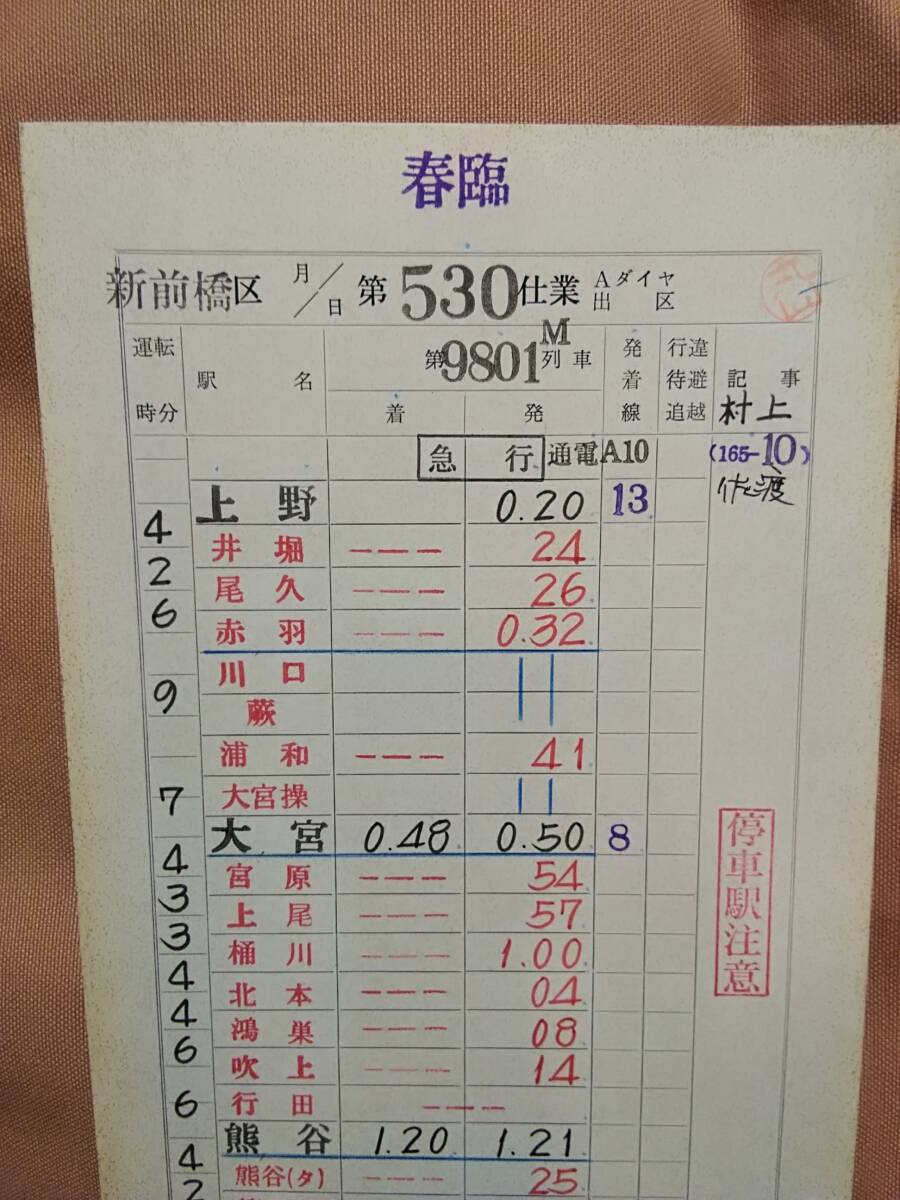 春臨
新前橋区 月/日 第530仕業 Aダイヤ出区
運転時分 駅名 第9801M列車 着 発 発着線 行違待避追越 記事 村上
急行 通電A10 (165-10)
上野 0.20 13 佐渡
4
井堀 --- 24
2
尾久 --- 26
6
赤羽 --- 0.32
川口 ||
9
蕨
浦和 --- 41
大宮操 ||
7
大宮 0.48 0.50 8
4
宮原 --- 54
3
上尾 --- 57
3
桶川 --- 1.00
4
北本 --- 04
4
鴻巣 --- 08
6
吹上 --- 14
行田 ---
6
熊谷 1.20 1.21
4
熊谷(タ) --- 25
2
停車駅注意